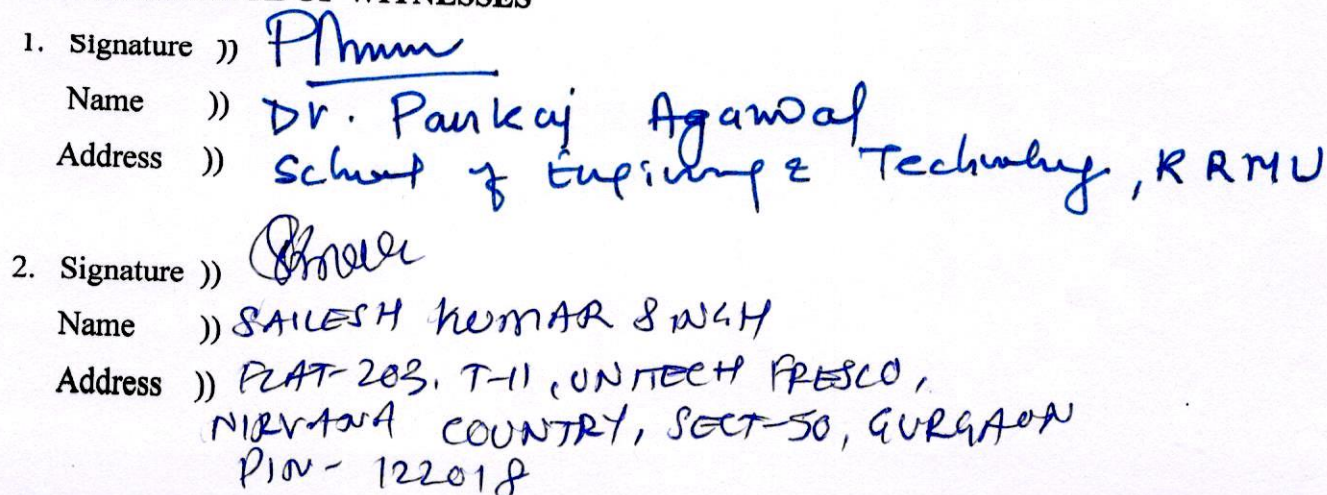 OF WITNESSES
1. Signature ))
Name )) Dr. Pankaj Agarwal
Address )) School of Engineering & Technology, KRMU
2. Signature ))
Name )) SAILESH KUMAR SINGH
Address )) FLAT-203, T-11, UNITECH FRESCO,
NIRVANA COUNTRY, SECT-50, GURGAON
PIN- 122018